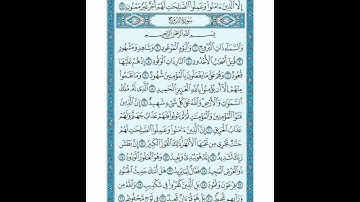 إِلَّا ٱلَّذِينَ ءَامَنُوا۟ وَعَمِلُوا۟ ٱلصَّٰلِحَٰتِ لَهُمْ أَجْرٌ غَيْرُ مَمْنُونٍۭ ٢٥
سُورَةُ البُرُوجِ
بِسْمِ ٱللَّهِ ٱلرَّحْمَٰنِ ٱلرَّحِيمِ
وَٱلسَّمَآءِ ذَاتِ ٱلْبُرُوجِ ١ وَٱلْيَوْمِ ٱلْمَوْعُودِ ٢ وَشَاهِدٍ وَمَشْهُودٍ ٣
قُتِلَ أَصْحَٰبُ ٱلْأُخْدُودِ ٤ ٱلنَّارِ ذَاتِ ٱلْوَقُودِ ٥ إِذْ هُمْ عَلَيْهَا
قُعُودٌ ٦ وَهُمْ عَلَىٰ مَا يَفْعَلُونَ بِٱلْمُؤْمِنِينَ شُهُودٌ ٧ وَمَا نَقَمُوا۟
مِنْهُمْ إِلَّآ أَن يُؤْمِنُوا۟ بِٱللَّهِ ٱلْعَزِيزِ ٱلْحَمِيدِ ٨ ٱلَّذِى لَهُۥ مُلْكُ
ٱلسَّمَٰوَٰتِ وَٱلْأَرْضِ وَٱللَّهُ عَلَىٰ كُلِّ شَىْءٍ شَهِيدٌ ٩ إِنَّ ٱلَّذِينَ
فَتَنُوا۟ ٱلْمُؤْمِنِينَ وَٱلْمُؤْمِنَٰتِ ثُمَّ لَمْ يَتُوبُوا۟ فَلَهُمْ عَذَابُ جَهَنَّمَ وَلَهُمْ
عَذَابُ ٱلْحَرِيقِ ١٠ إِنَّ ٱلَّذِينَ ءَامَنُوا۟ وَعَمِلُوا۟ ٱلصَّٰلِحَٰتِ لَهُمْ جَنَّٰتٌ
تَجْرِى مِن تَحْتِهَا ٱلْأَنْهَٰرُ ذَٰلِكَ ٱلْفَوْزُ ٱلْكَبِيرُ ١١ إِنَّ بَطْشَ
رَبِّكَ لَشَدِيدٌ ١٢ إِنَّهُۥ هُوَ يُبْدِئُ وَيُعِيدُ ١٣ وَهُوَ ٱلْغَفُورُ ٱلْوَدُودُ ١٤
ذُو ٱلْعَرْشِ ٱلْمَجِيدُ ١٥ فَعَّالٌ لِّمَا يُرِيدُ ١٦ هَلْ أَتَىٰكَ حَدِيثُ ٱلْجُنُودِ ١٧
فِرْعَوْنَ وَثَمُودَ ١٨ بَلِ ٱلَّذِينَ كَفَرُوا۟ فِى تَكْذِيبٍ ١٩ وَٱللَّهُ مِن
وَرَآئِهِم مُّحِيطٌۢ ٢٠ بَلْ هُوَ قُرْءَانٌ مَّجِيدٌ ٢١ فِى لَوْحٍ مَّحْفُوظٍۭ ٢٢